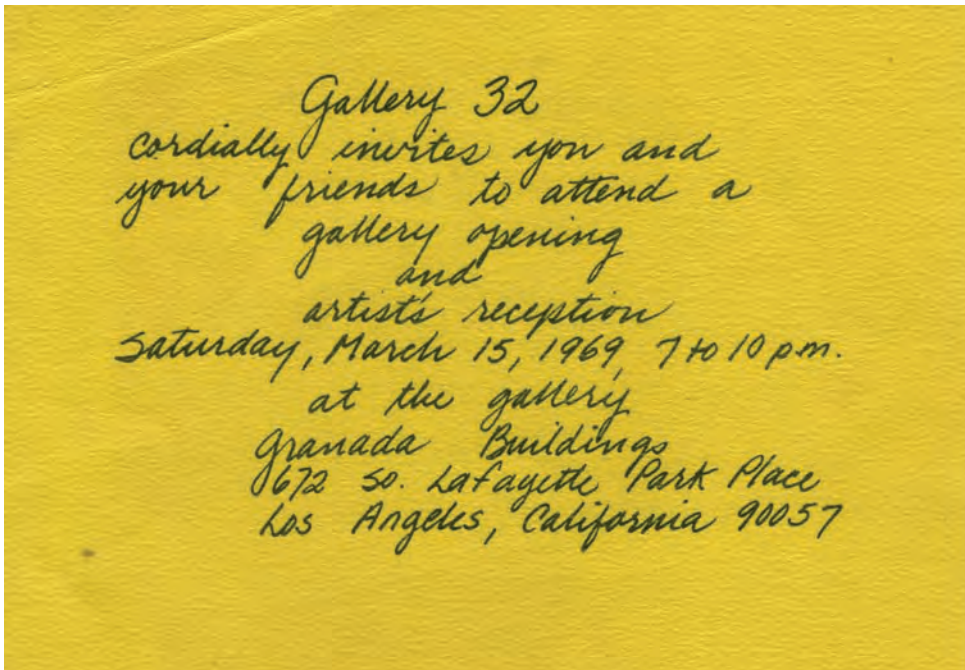 Gallery 32
cordially invites you and
your friends to attend a
gallery opening
and
artist's reception
Saturday, March 15, 1969, 7 to 10 p.m.
at the gallery
Granada Buildings
672 So. Lafayette Park Place
Los Angeles, California 90057